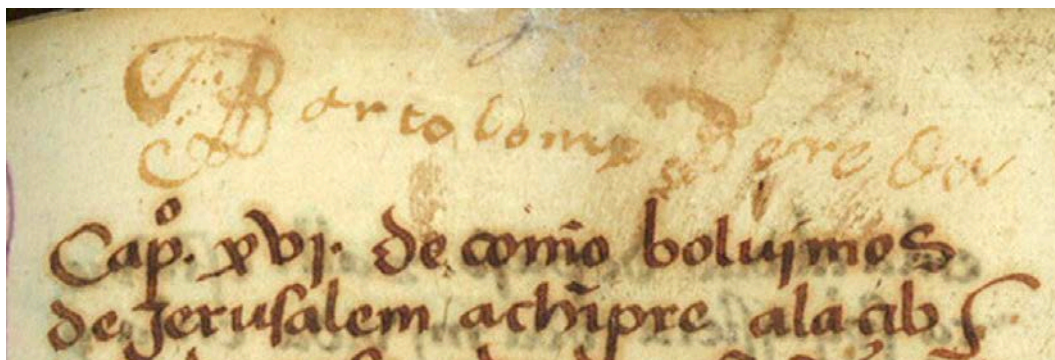 Bartolome
Capº. xvj. de como boluimos
de Jerusalem a chipre ala cib